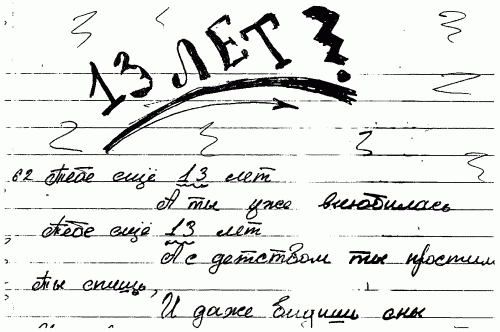 13 ЛЕТ?
62 Тебе ещё 13 лет
А ты уже влюбилась
Тебе ещё 13 лет
А с детством ты простил
Ты спишь,
И даже видишь сны